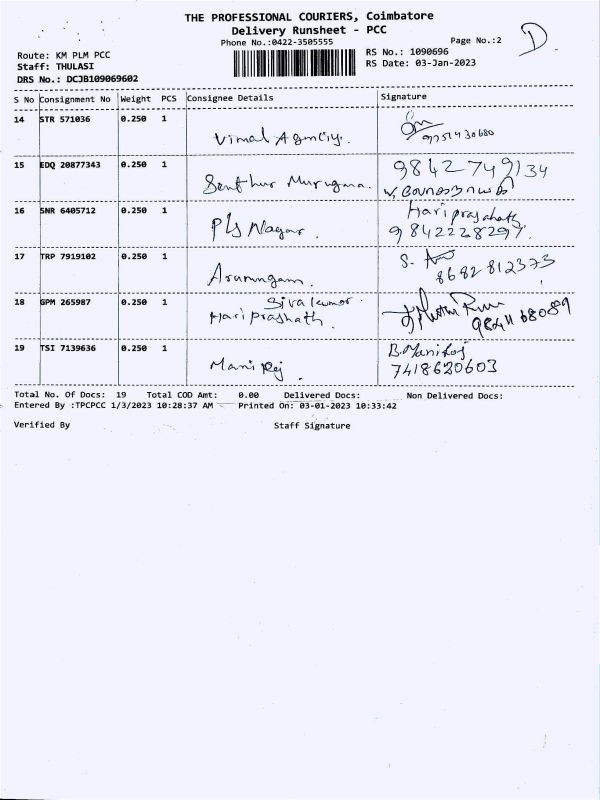 THE PROFESSIONAL COURIERS, Coimbatore
Delivery Runsheet - PCC
Phone No.:0422-3505555
Page No.:2
D.
Route: KM PLM PCC
RS No.: 1090696
Staff: THULASI
RS Date: 03-Jan-2023
DRS No.: DCJB109069602
S No Consignment No Weight PCS Consignee Details Signature
14 STR 571036 0.250 1 Vimal Agenciy.
9751430680
15 EDQ 20877343 0.250 1 Senthur Murugana. 9842749134
16 SNR 6405712 0.250 1 Pls Nagar. Hariprashath
9842228297.
17 TRP 7919102 0.250 1 Arumugam. S.
8682812373
18 GPM 265987 0.250 1 Sivakumar.
Hariprashath. 9841168089
19 TSI 7139636 0.250 1 Mani Raj. B.Maniraj
7418620603
Total No. Of Docs: 19 Total COD Amt: 0.00 Delivered Docs: Non Delivered Docs:
Entered By :TPCPCC 1/3/2023 10:28:37 AM Printed On: 03-01-2023 10:33:42
Verified By Staff Signature